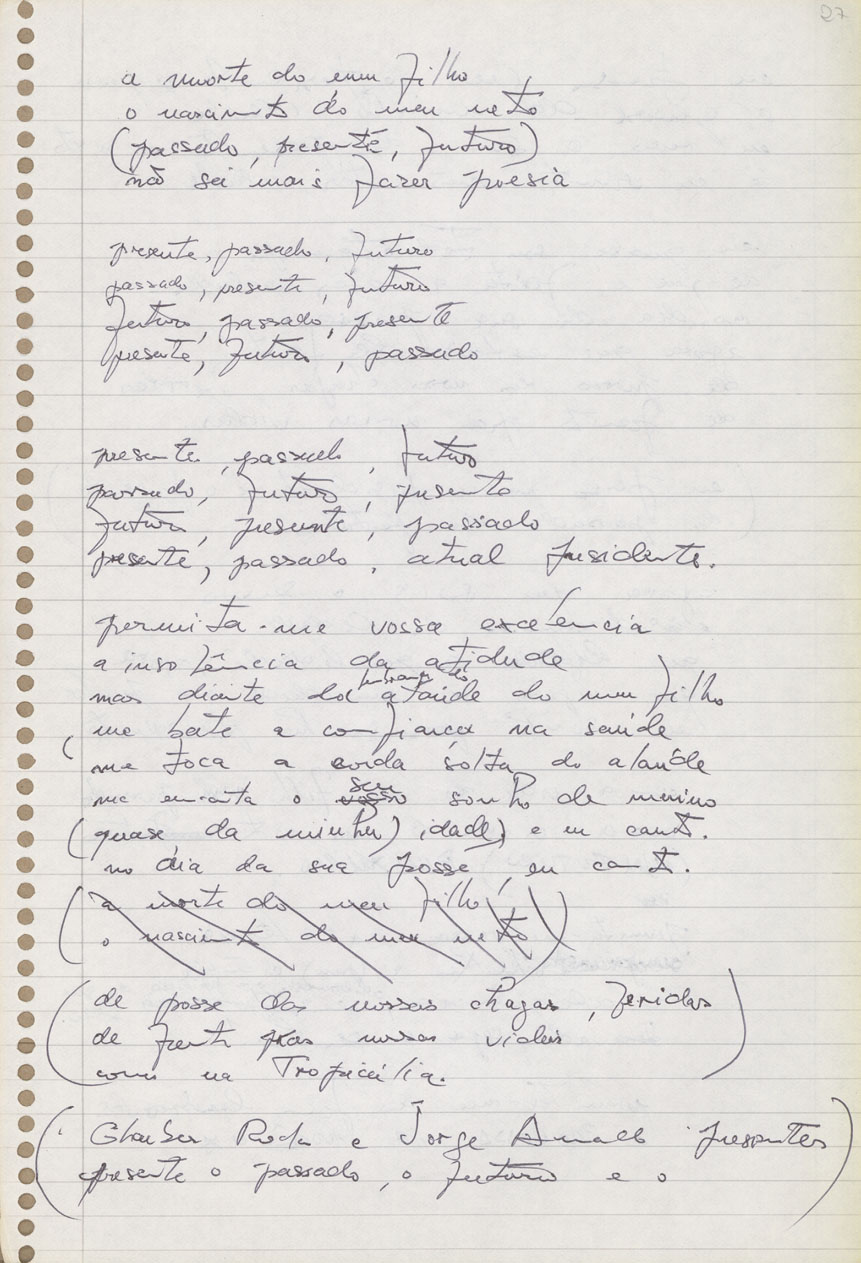 27
a morte do meu filho
o nascimento do meu neto
(passado, presente, futuro)
não sei mais fazer poesia
presente, passado, futuro
passado, presente, futuro
futuro, passado, presente
presente, futuro, passado
presente, passado, futuro
passado, futuro, presente
futuro, presente, passado
presente, passado, atual presidente.
permita-me vossa excelência
a insolência da atidude
lembrança do
mas diante do ataúde do meu filho
me bate a confiança na saúde
(me toca a corda solta do alaúde
seu
me encanta o vosso sonho de menino
(quase da minha) idade) e eu canto.
no dia da sua posse, eu canto.
(a morte do meu filho,
o nascimento do meu neto)
(de posse das nossas chagas, feridas
de frente pras nossas vidas
como na Tropicália.)
(Glauber Rocha e Jorge Amado presentes
presente o passado, o futuro e o)